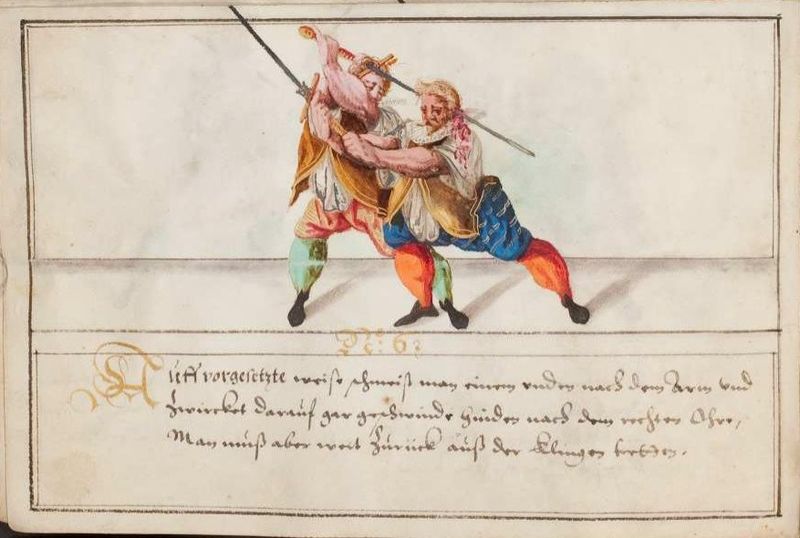 No: 6:
Auff vorgesetzte weise schmeist man einem unden nach dem Arm und
Zwircket darauf gar geschwinde hinden nach dem rechten Ohre,
Man muß aber weit Zurück auß der Klingen tretten.